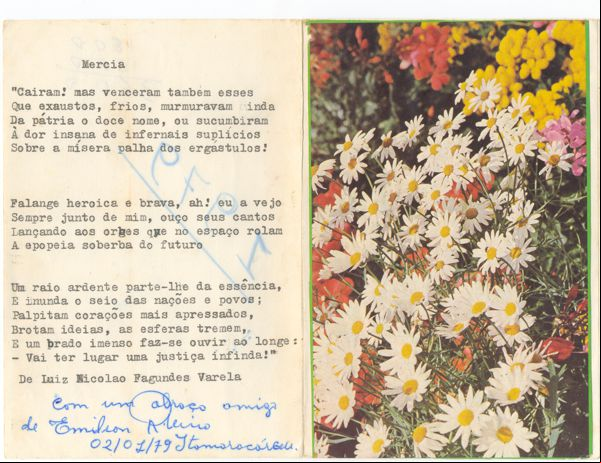 Mercia
"Cairam! mas venceram também esses
Que exaustos, frios, murmuravam inda
Da pátria o doce nome, ou sucumbiram
À dor insana de infernais suplícios
Sobre a mísera palha dos ergástulos!
Falange heroica e brava, ah! eu a vejo
Sempre junto de mim, ouço seus cantos
Lançando aos orbes que no espaço rolam
A epopeia soberba do futuro
Um raio ardente parte-lhe da essência,
E inunda o seio das nações e povos;
Palpitam corações mais apressados,
Brotam ideias, as esferas tremem,
E um brado imenso faz-se ouvir ao longe:
- Vai ter lugar uma justiça infinda!"
De Luiz Nicolao Fagundes Varela
Com um abraço amigo
de Emilion
02/01/79
1979